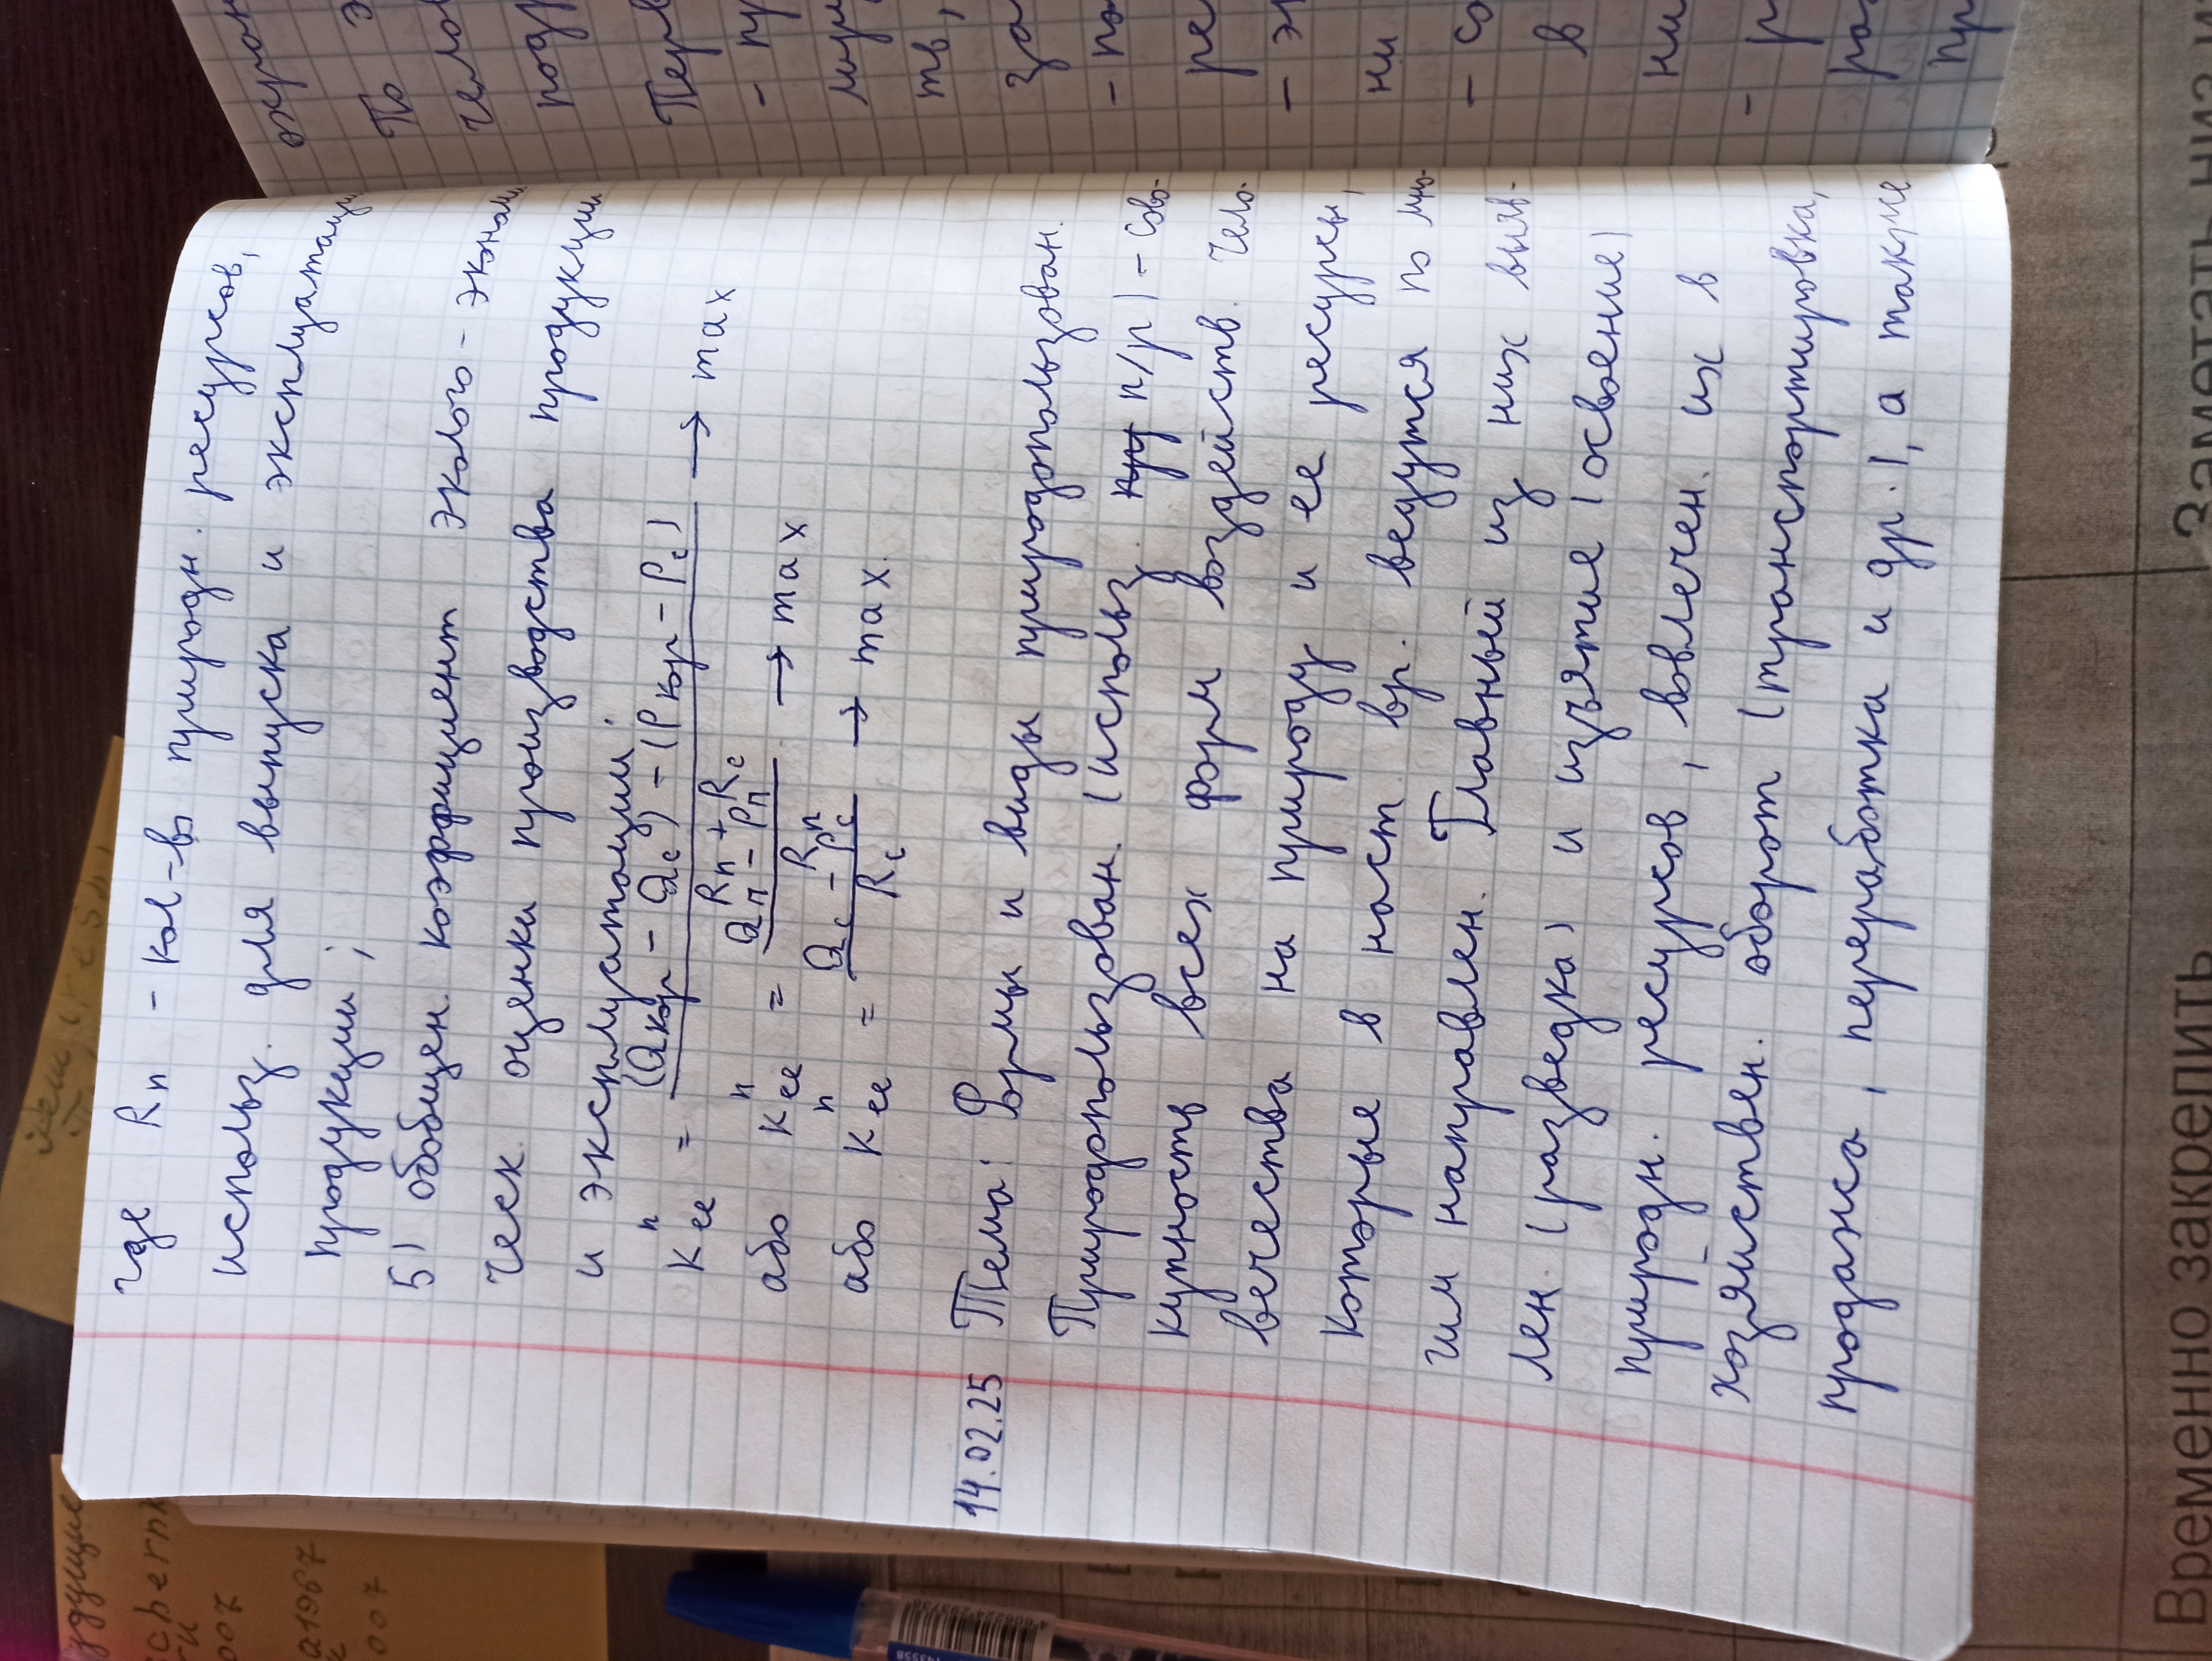 где Rп - кол-во природн. ресурсов,
использ. для выпуска и эксплуатации
продукции;
5) обобщен. коэффициент эколого-эконом
ческ. оценки производства продукции
и эксплуатации:
Kееⁿ = (Qкор - Qс) - (Pкор - Pс) / Rп + Rс → max
або Kееⁿ = Qп - Pп / Rп → max
або Kееⁿ = Qс - Pс / Rс → max
14.02.25 Тема: Формы и виды природопользован.
Природопользован. (использ. п/р) - сово-
купность всех форм воздейств. чело-
вечества на природу и ее ресурсы,
которые в наст. вр. ведутся по мно-
гим направлен. Главный из них выяв-
лен. (разведка) и изъятие (освоение)
природн. ресурсов, вовлечен. их в
хозяйствен. оборот (транспортировка,
продажа, переработка и др.), а также
охран
По э
челов
подр
Перв
- пр
тв,
за
- по
ре
- эк
ни
- со
в
ни
- р
ра
пр
дущие
chernik
007
a1967
007
Временно закрепить
Заметать низ и